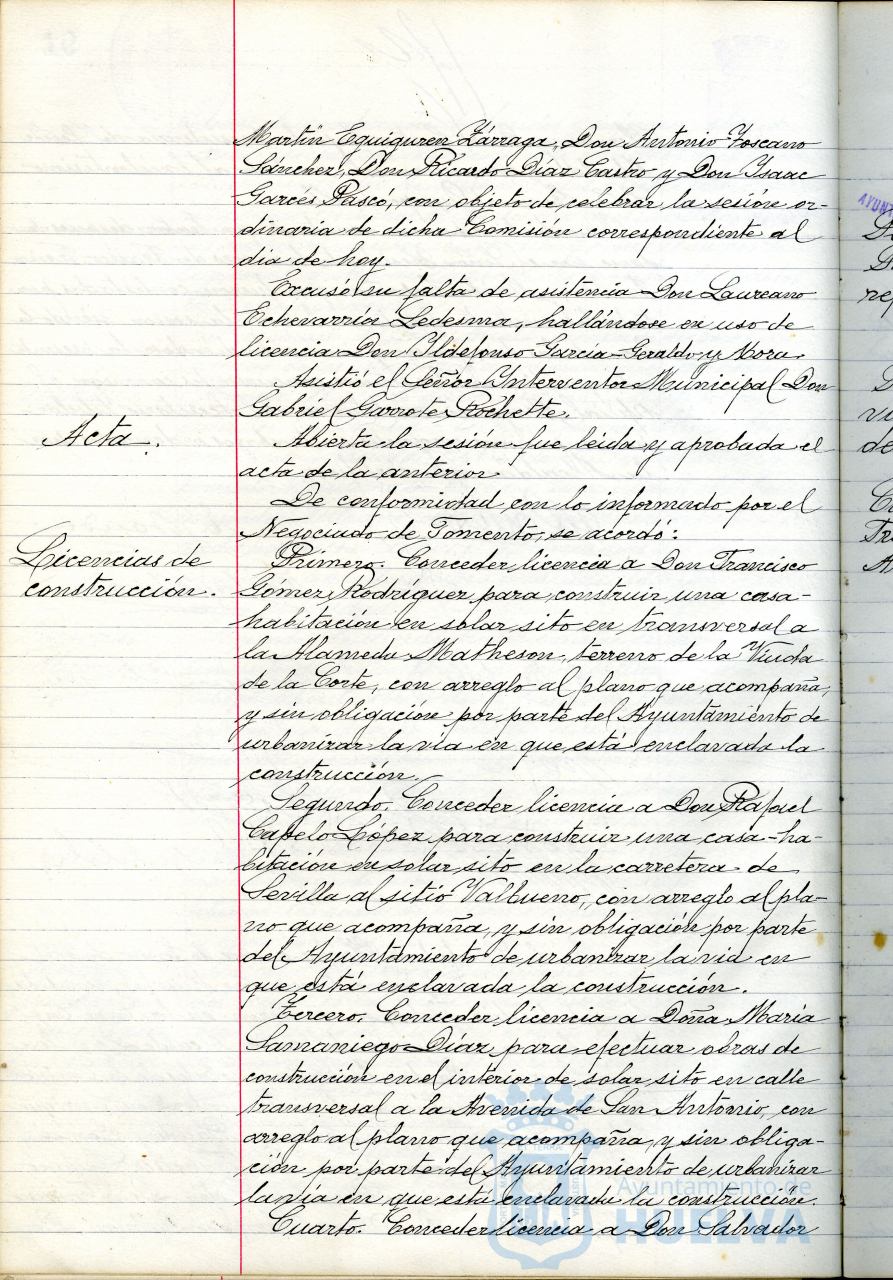 Martín Eguiguren Zárraga, Don Antonio Toscano
Sánchez, Don Ricardo Díaz Castro y Don Isaac
Garcés Pascó, con objeto de celebrar la sesión or-
dinaria de dicha Comisión correspondiente al
dia de hoy.
Excusó su falta de asistencia Don Laureano
Echevarría Ledesma, hallándose en uso de
licencia Don Ildefonso García-Geraldo y Mora.
Asistió el Señor Interventor Municipal Don
Gabriel Garrote Rochette.
Acta.
Abierta la sesión fue leida y aprobada el
acta de la anterior.
De conformidad con lo informado por el
Negociado de Fomento, se acordó:
Licencias de
construcción.
Primero. Conceder licencia a Don Francisco
Gómez Rodríguez para construir una casa-
habitación en solar sito en transversal a
la Alameda Matheson, terreno de la Viuda
de la Corte, con arreglo al plano que acompaña,
y sin obligación por parte del Ayuntamiento de
urbanizar la vía en que está enclavada la
construcción.
Segundo. Conceder licencia a Don Rafael
Capelo López para construir una casa-ha-
bitación en solar sito en la carretera de
Sevilla al sitio Valbueno, con arreglo al pla-
no que acompaña, y sin obligación por parte
del Ayuntamiento de urbanizar la via en
que está enclavada la construcción.
Tercero. Conceder licencia a Doña María
Samaniego Díaz para efectuar obras de
construcción en el interior de solar sito en calle
transversal a la Avenida de San Antonio, con
arreglo al plano que acompaña, y sin obliga-
ción por parte del Ayuntamiento de urbanizar
la vía en que está enclavada la construcción.
Cuarto. Conceder licencia a Don Salvador
Ayuntamiento de
HUELVA